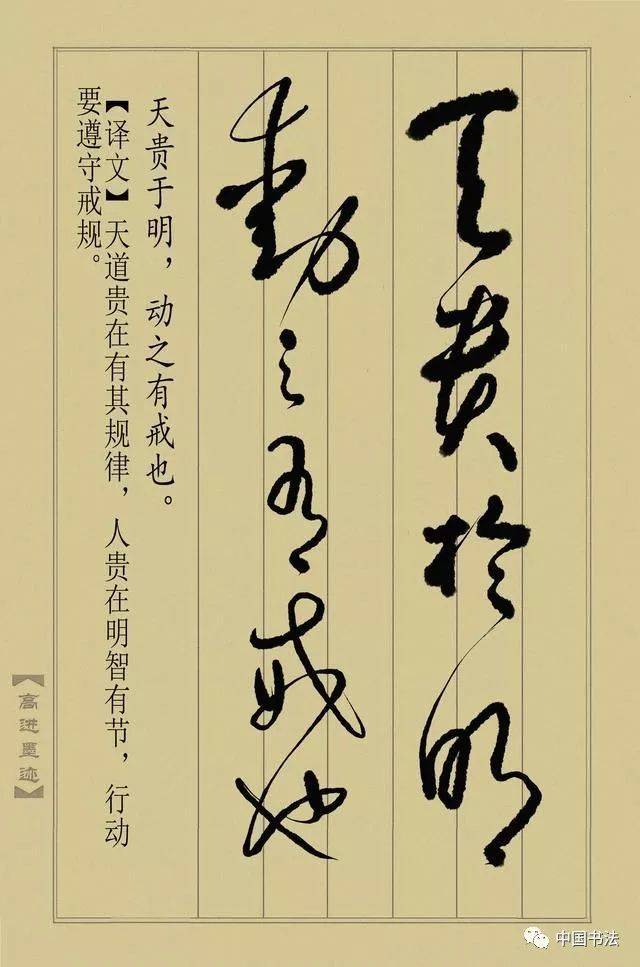 天贵於明
动之有戒也
天贵于明，动之有戒也。
【译文】天道贵在有其规律，人贵在明智有节，行动
要遵守戒规。
【高进墨迹】
中国书法